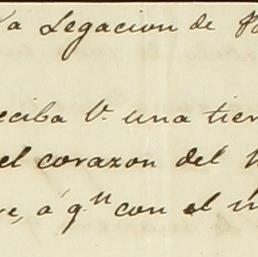 La Legacion de
eciba V. una tier
el corazon del
re, á q.n con el m